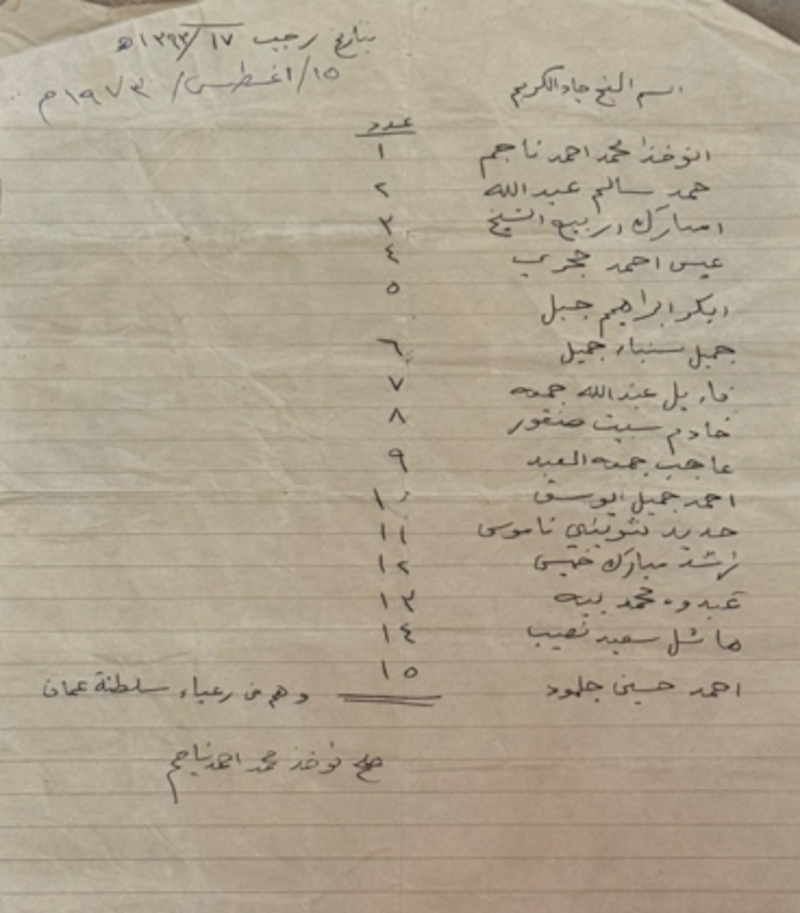 بتاريخ رجب ١٧/ ١٣٩٣ه
١٥/اغسطس/ ١٩٧٣م
اسم النج جاد الكريم
عدد
النوخذا محمد احمد ناجم ١
حمد سالم عبدالله ٢
امبارك اربيع الشيخ ٣
عيس احمد ٤
ابكر ابراهيم جبل ٥
جميل سنبار جميل ٦
عبدالله جمعه ٧
خادم سبيت صنقور ٨
جمعه العبد ٩
احمد جميل ١٠
حديد ناموسى ١١
مبارك خميس ١٢
محمد بيه ١٣
سعيد نصيب ١٤
احمد حسين جلمود ١٥ وهم من رعياء سلطنة عمان
صح نوخذ محمد احمد ناجم